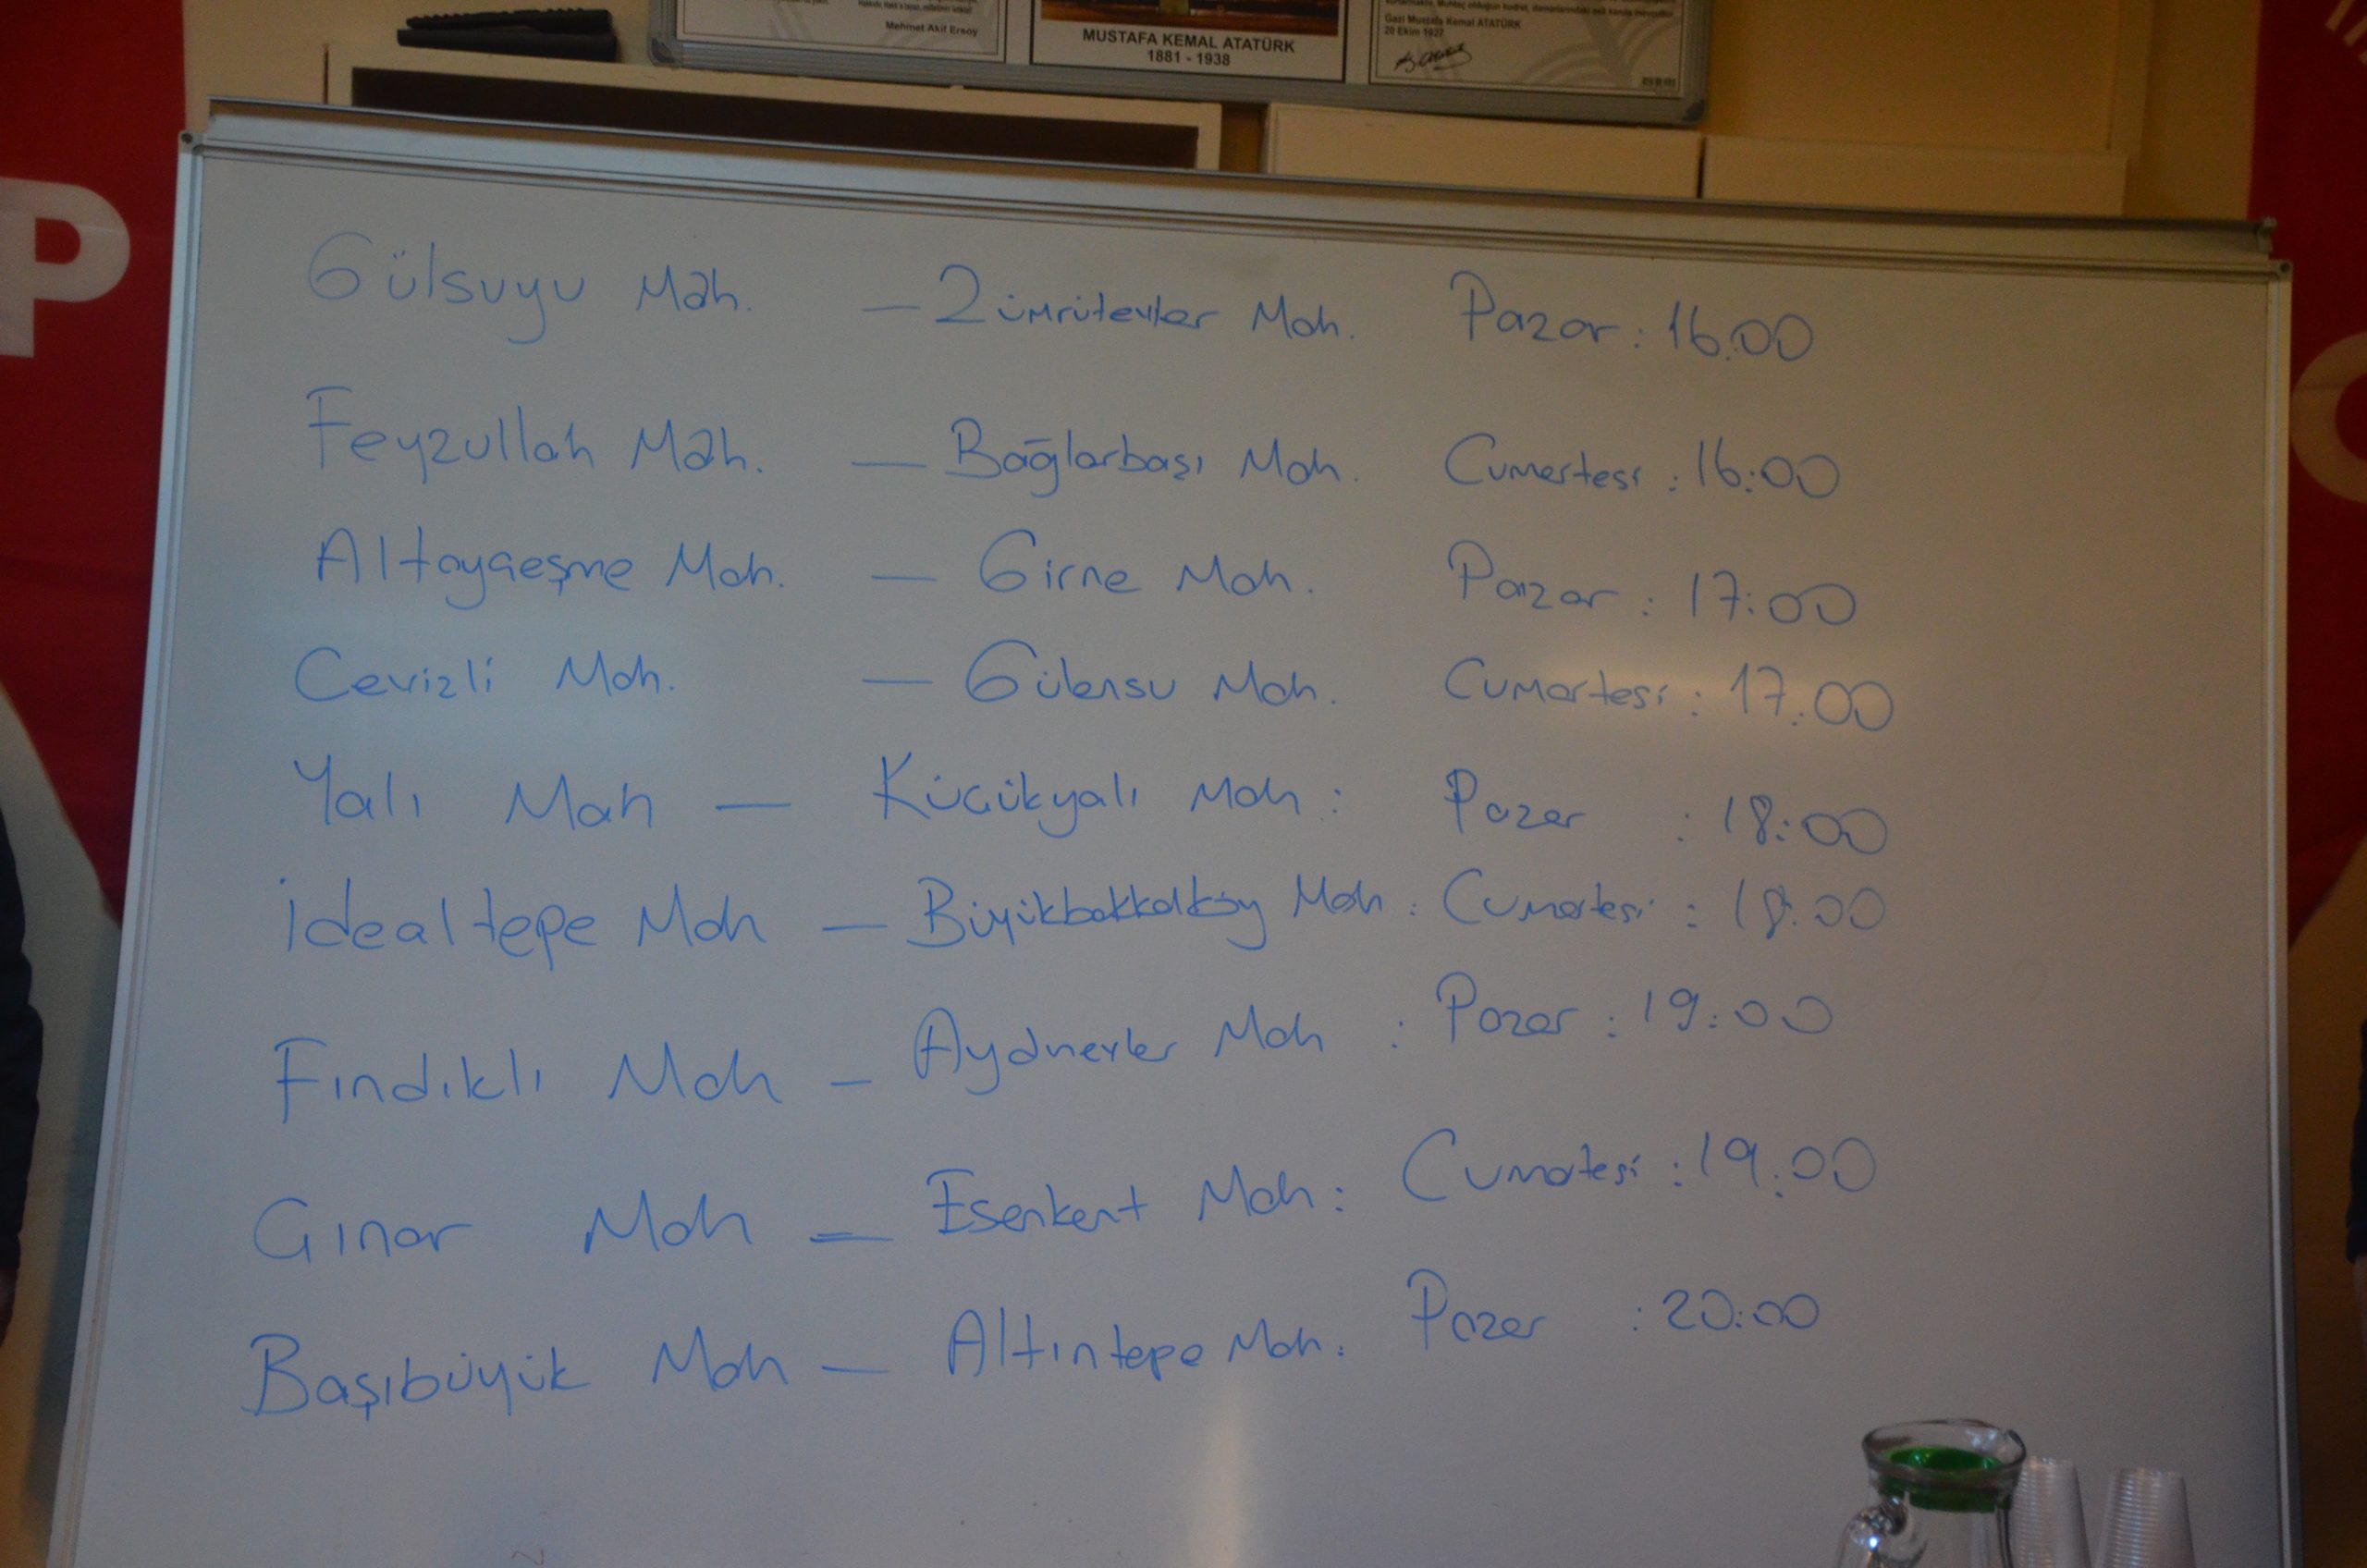 Mehmet Akif Ersoy
MUSTAFA KEMAL ATATÜRK
1881 - 1938
Gazi Mustafa Kemal ATATÜRK
20 Ekim 1927
P
Gülsuyu Mah. — Zümrütevler Mah. Pazar : 16.00
Feyzullah Mah. — Bağlarbaşı Mah. Cumartesi : 16:00
Altayçeşme Mah. — Girne Mah. Pazar : 17:00
Cevizli Mah. — Gülensu Mah. Cumartesi : 17.00
Yalı Mah — Küçükyalı Mah : Pazar : 18:00
İdealtepe Mah — Büyükbakkalköy Mah : Cumartesi : 18.00
Fındıklı Mah — Aydınevler Mah : Pazar : 19:00
Çınar Mah — Esenkent Mah : Cumartesi : 19:00
Başıbüyük Mah — Altıntepe Mah : Pazar : 20:00